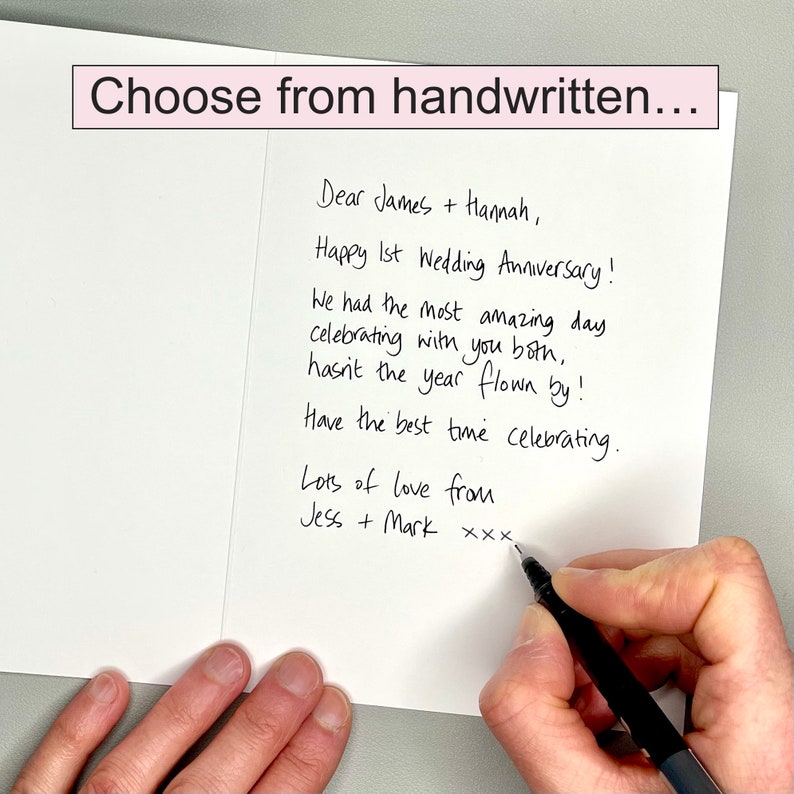 Choose from handwritten...
Dear James + Hannah,
Happy 1st Wedding Anniversary!
We had the most amazing day
celebrating with you both,
hasn't the year flown by!
Have the best time celebrating.
Lots of love from
Jess + Mark xxx